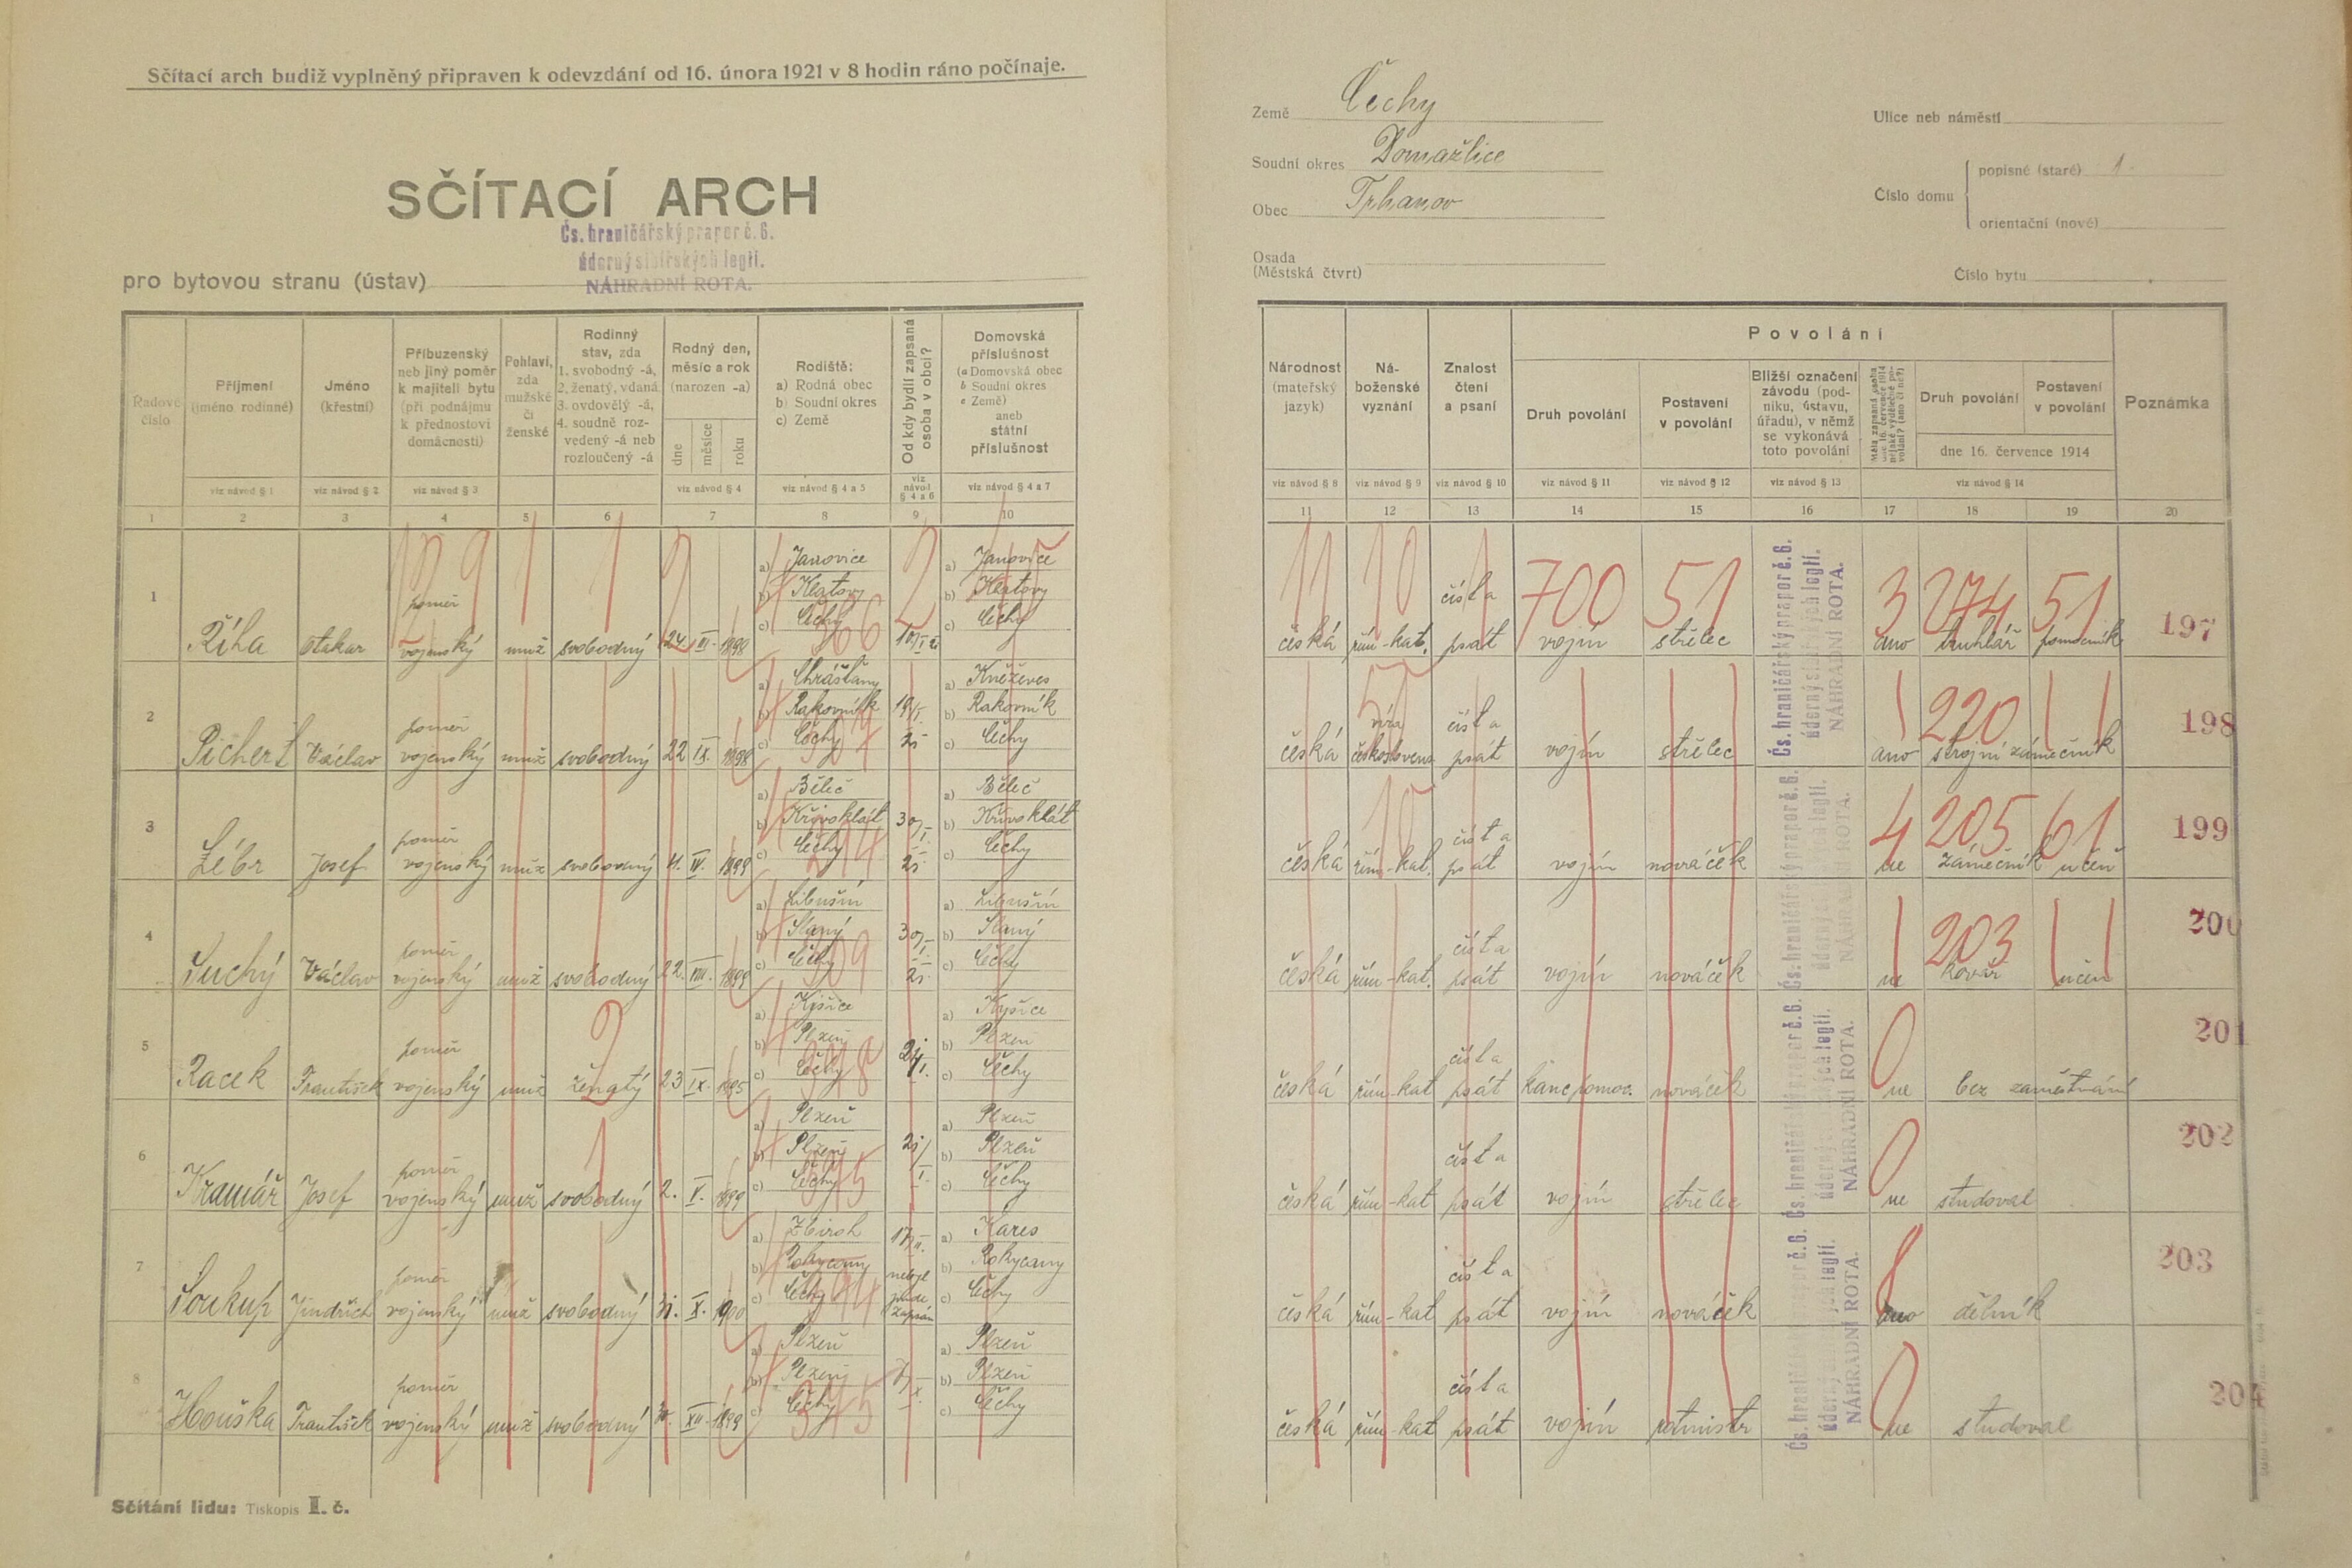 Sčítací arch budiž vyplněný připraven k odevzdání od 16. února 1921 v 8 hodin ráno počínaje.
SČÍTACÍ ARCH
Čs. hraničářský prapor č. 6.
úderný sibiřských legií.
NÁHRADNÍ ROTA.
pro bytovou stranu (ústav)
Země Čechy
Soudní okres Domažlice
Obec Trhanov
Osada
(Městská čtvrt)
Ulice neb náměstí
Číslo domu
popisné (staré) 1
orientační (nové)
Číslo bytu
Řadové číslo
Příjmení (jméno rodinné)
Jméno (křestní)
Příbuzenský neb jiný poměr k majiteli bytu (při podnájmu k přednostovi domácnosti)
Pohlaví, zda mužské či ženské
Rodinný stav, zda 1. svobodný -á, 2. ženatý, vdaná 3. ovdovělý -á, 4. soudně rozvedený -á neb rozloučený -á
Rodný den, měsíc a rok (narozen -a)
dne měsíce roku
Rodiště: a) Rodná obec b) Soudní okres c) Země
Od kdy bydlí zapsaná osoba v obci?
Domovská příslušnost (a Domovská obec b Soudní okres c Země) aneb státní příslušnost
Národnost (mateřský jazyk)
Náboženské vyznání
Znalost čtení a psaní
Povolání
Druh povolání
Postavení v povolání
Bližší označení závodu (podniku, ústavu, úřadu), v němž se vykonává toto povolání
Druh povolání
Postavení v povolání
dne 16. července 1914
Poznámka
viz návod § 1 viz návod § 2 viz návod § 3 viz návod § 4 viz návod § 4 a 5 viz návod § 4 a 6 viz návod § 4 a 7
viz návod § 8 viz návod § 9 viz návod § 10 viz návod § 11 viz návod § 12 viz návod § 13 viz návod § 14
1 2 3 4 5 6 7 8 9 10 11 12 13 14 15 16 17 18 19 20
1 Říha Otakar poměr vojenský muž svobodný 24 III. 1898 a) Janovice b) Klatovy c) Čechy a) Janovice b) Klatovy c) Čechy
česká řím-kat. číst a psát vojín střelec ano truhlář pomocník 197
11 10 700 51 3 274 51
2 Pichert Václav poměr vojenský muž svobodný 22 IX. 1898 a) Chrášťany b) Rakovník c) Čechy a) Kněževes b) Rakovník c) Čechy
česká víra českosloven. číst a psát vojín střelec ano strojní zámečník 198
220
3 Žébr Josef poměr vojenský muž svobodný 4. IV. 1899 a) Běleč b) Křivoklát c) Čechy a) Běleč b) Křivoklát c) Čechy
česká řím-kat. číst a psát vojín nováček ne zámečník učeň 199
10 4 205 61
4 Suchý Václav poměr vojenský muž svobodný 22. VIII. 1899 a) Libušín b) Slaný c) Čechy a) Libušín b) Slaný c) Čechy
česká řím-kat. číst a psát vojín nováček ne kovář učeň 200
203
5 Racek František poměr vojenský muž ženatý 23 IX. 1895 a) Kyšice b) Plzeň c) Čechy a) Kyšice b) Plzeň c) Čechy
česká řím-kat číst a psát kanc. pomoc. nováček ne bez zaměstnání 201
6 Kramář Josef poměr vojenský muž svobodný 2. V. 1899 a) Plzeň b) Plzeň c) Čechy a) Plzeň b) Plzeň c) Čechy
česká řím-kat číst a psát vojín střelec ne studoval 202
7 Soukup Jindřich poměr vojenský muž svobodný 31. X. 1900 a) Zbiroh b) Rokycany c) Čechy a) Kařes b) Rokycany c) Čechy
česká řím-kat číst a psát vojín nováček ano dělník 203
8 Houška František poměr vojenský muž svobodný XII. 1899 a) Plzeň b) Plzeň c) Čechy 345 a) Plzeň b) Plzeň c) Čechy
česká řím-kat číst a psát vojín rotmistr ne studoval 204
Čs. hraničářský prapor č. 6.
úderný sibiřských legií.
NÁHRADNÍ ROTA.
Čs. hraničářský prapor č. 6.
úderný sibiřských legií.
NÁHRADNÍ ROTA.
Čs. hraničářský prapor č. 6.
úderný sibiřských legií.
NÁHRADNÍ ROTA.
Čs. hraničářský prapor č. 6.
úderný sibiřských legií.
NÁHRADNÍ ROTA.
Sčítání lidu: Tiskopis I. č.